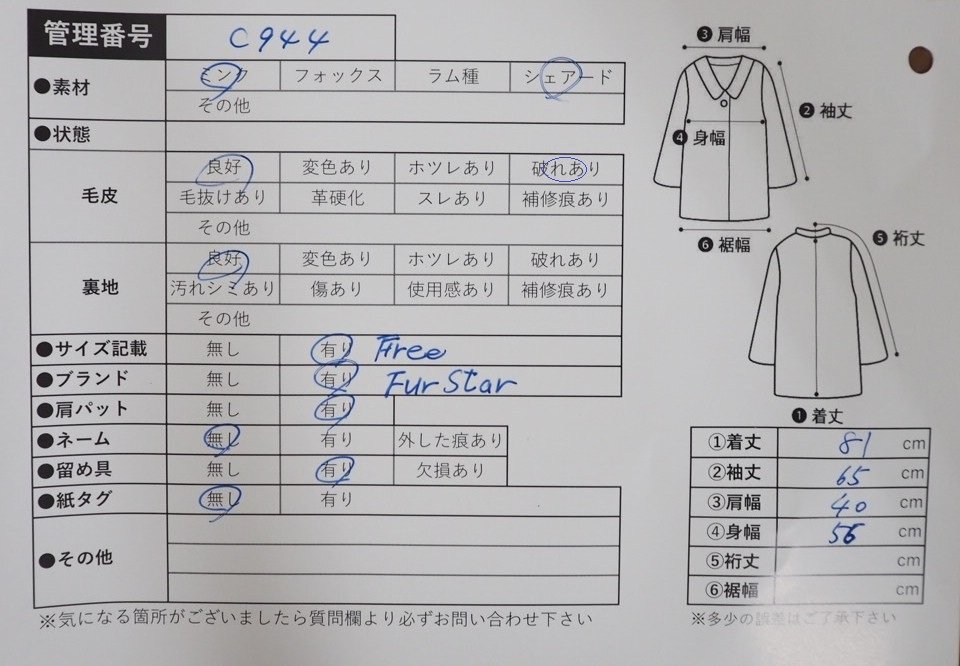 管理番号 C944
●素材 ミンク フォックス ラム種 シェアード
その他
●状態
毛皮 良好 変色あり ホツレあり 破れあり
毛抜けあり 革硬化 スレあり 補修痕あり
その他
裏地 良好 変色あり ホツレあり 破れあり
汚れシミあり 傷あり 使用感あり 補修痕あり
その他
●サイズ記載 無し 有り Free
●ブランド 無し 有り Fur Star
●肩パット 無し 有り
●ネーム 無し 有り 外した痕あり
●留め具 無し 有り 欠損あり
●紙タグ 無し 有り
●その他
※気になる箇所がございましたら質問欄より必ずお問い合わせ下さい
❸肩幅
❷袖丈
❹身幅
❻裾幅
❺裄丈
❶着丈
①着丈 81 cm
②袖丈 65 cm
③肩幅 40 cm
④身幅 56 cm
⑤裄丈 cm
⑥裾幅 cm
※多少の誤差はご了承下さい